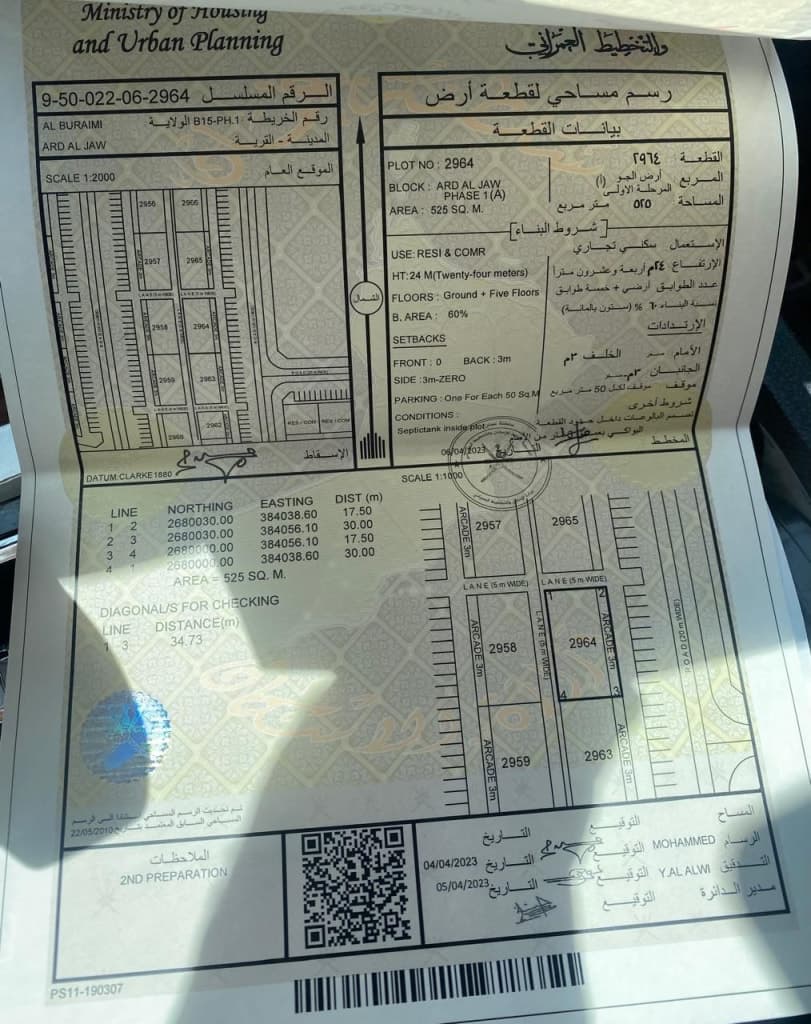 Ministry of Housing
and Urban Planning
والتخطيط العمراني
9-50-022-06-2964 الرقم المسلسل
AL BURAIMI B15-PH.1 رقم الخريطة الولاية
ARD AL JAW المدينة - القرية
SCALE 1:2000 الموقع العام
2956 2966
2957 2965
LANE (5 m WIDE) LANE (5 m WIDE)
2958 2964
2959 2963
2960 2962
RES / COM RES / COM
DATUM:CLARKE1880 الإسقاط
الشمال
رسم مساحي لقطعة أرض
بيانات القطعة
PLOT NO : 2964 القطعة ٢٩٦٤
BLOCK : ARD AL JAW المربع أرض الجو
PHASE 1(A) المرحلة الاولى (أ)
AREA : 525 SQ. M. المساحة ٥٢٥ متر مربع
شروط البناء
USE: RESI & COMR الإستعمال سكني تجاري
HT:24 M(Twenty-four meters) الإرتفاع ٢٤م أربعة وعشرون متراً
FLOORS : Ground + Five Floors عدد الطوابق أرضي + خمسة طوابق
B. AREA : 60% نسبة البناء ٦٠ % (ستون بالمائة)
SETBACKS الإرتدادات
FRONT : 0 BACK : 3m الأمام الخلف ٣م
SIDE :3m-ZERO الجانبان ٣م
PARKING : One For Each 50 Sq.M موقف موقف لكل 50 متر مربع
CONDITIONS : شروط أخرى
Septictank inside plot
06/04/2023 التاريخ
المخطط
SCALE 1:1000
LINE NORTHING EASTING DIST (m)
1 2 2680030.00 384038.60 17.50
2 3 2680030.00 384056.10 30.00
3 4 2680000.00 384056.10 17.50
4 1 2680000.00 384038.60 30.00
AREA = 525 SQ. M.
DIAGONAL/S FOR CHECKING
LINE DISTANCE(m)
1 3 34.73
ARCADE 3m 2957 2965
LANE (5 m WIDE) LANE (5 m WIDE)
1 2
ARCADE 3m 2958 LANE (5 m WIDE) 2964 ARCADE 3m ROAD (20 m WIDE)
4 3
ARCADE 3m 2959 2963 ARCADE 3m
تم تحديث الرسم المساحي استنادا الى الرسم
المساحي السابق المعتمد بتاريخ 22/05/2010
الملاحظات
2ND PREPARATION
المساح التوقيع التاريخ
الرسام MOHAMMED التوقيع التاريخ 04/04/2023
التدقيق Y.AL ALWI التوقيع التاريخ 05/04/2023
مدير الدائرة التوقيع
PS11-190307